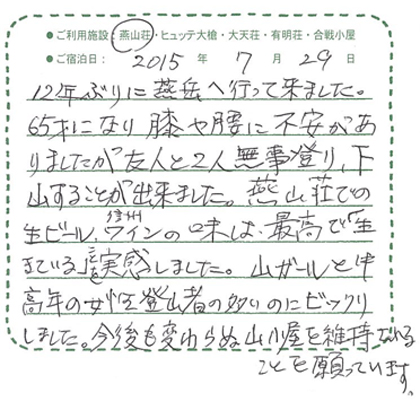 ●ご利用施設：燕山荘・ヒュッテ大槍・大天荘・有明荘・合戦小屋
●ご宿泊日：2015年7月29日
12年ぶりに燕岳へ行って来ました。
65才になり膝や腰に不安があ
りましたが友人と2人無事登り、下
山することが出来ました。燕山荘での
生ビール、信州ワインの味は、最高で「生
きている」を実感しました。山ガールと中
高年の女性登山者の多いのにビックリ
しました。今後も変わらぬ山小屋を維持される
ことを願っています。